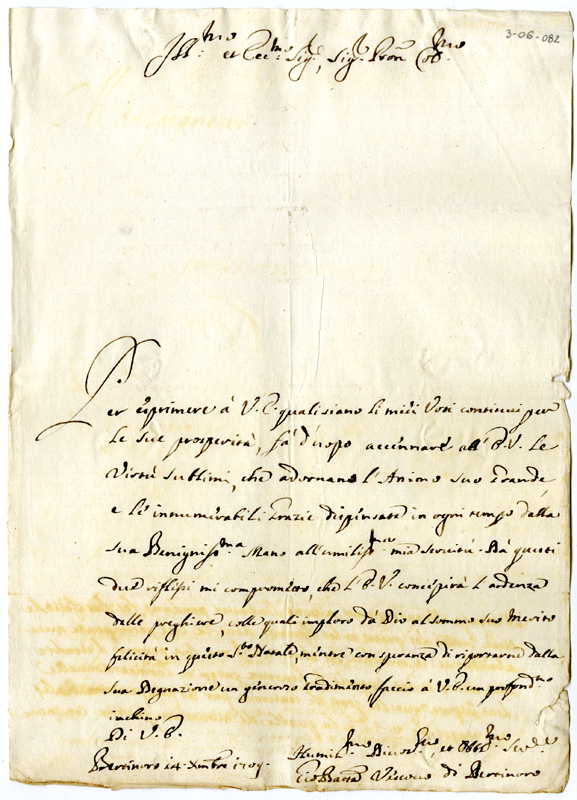 3-06-082
Ill.mo et Ecc.mo Sig.r, Sig.r Pron Col.mo
Per esprimere à V.E. quali siano li miei Voti continui per
le sue prosperità, fà d'uopo accennare all'E.V. le
Virtù sublimi, che adornano l'Animo suo grande,
e le innumerabili grazie dispensate in ogni tempo dalla
sua Benigniss.ma Mano all'umiliss.ma mia servitù. Da questi
due riflessi mi comprometto, che l'E.V. concepirà l'ardenza
delle preghiere, colle quali imploro da Dio al sommo suo Merito
felicità in questo S.to Natale, mentre con speranza di riportarne dalla
sua Degnazione un generoso gradimento, faccio à V.E. un profond.mo
inchino
Di V.E.
Bertinoro 14. Xmbre 1709.
Humil.mo Divo.mo, et Obbl.mo Ser.re
Gio Batta Vescovo di Bertinoro